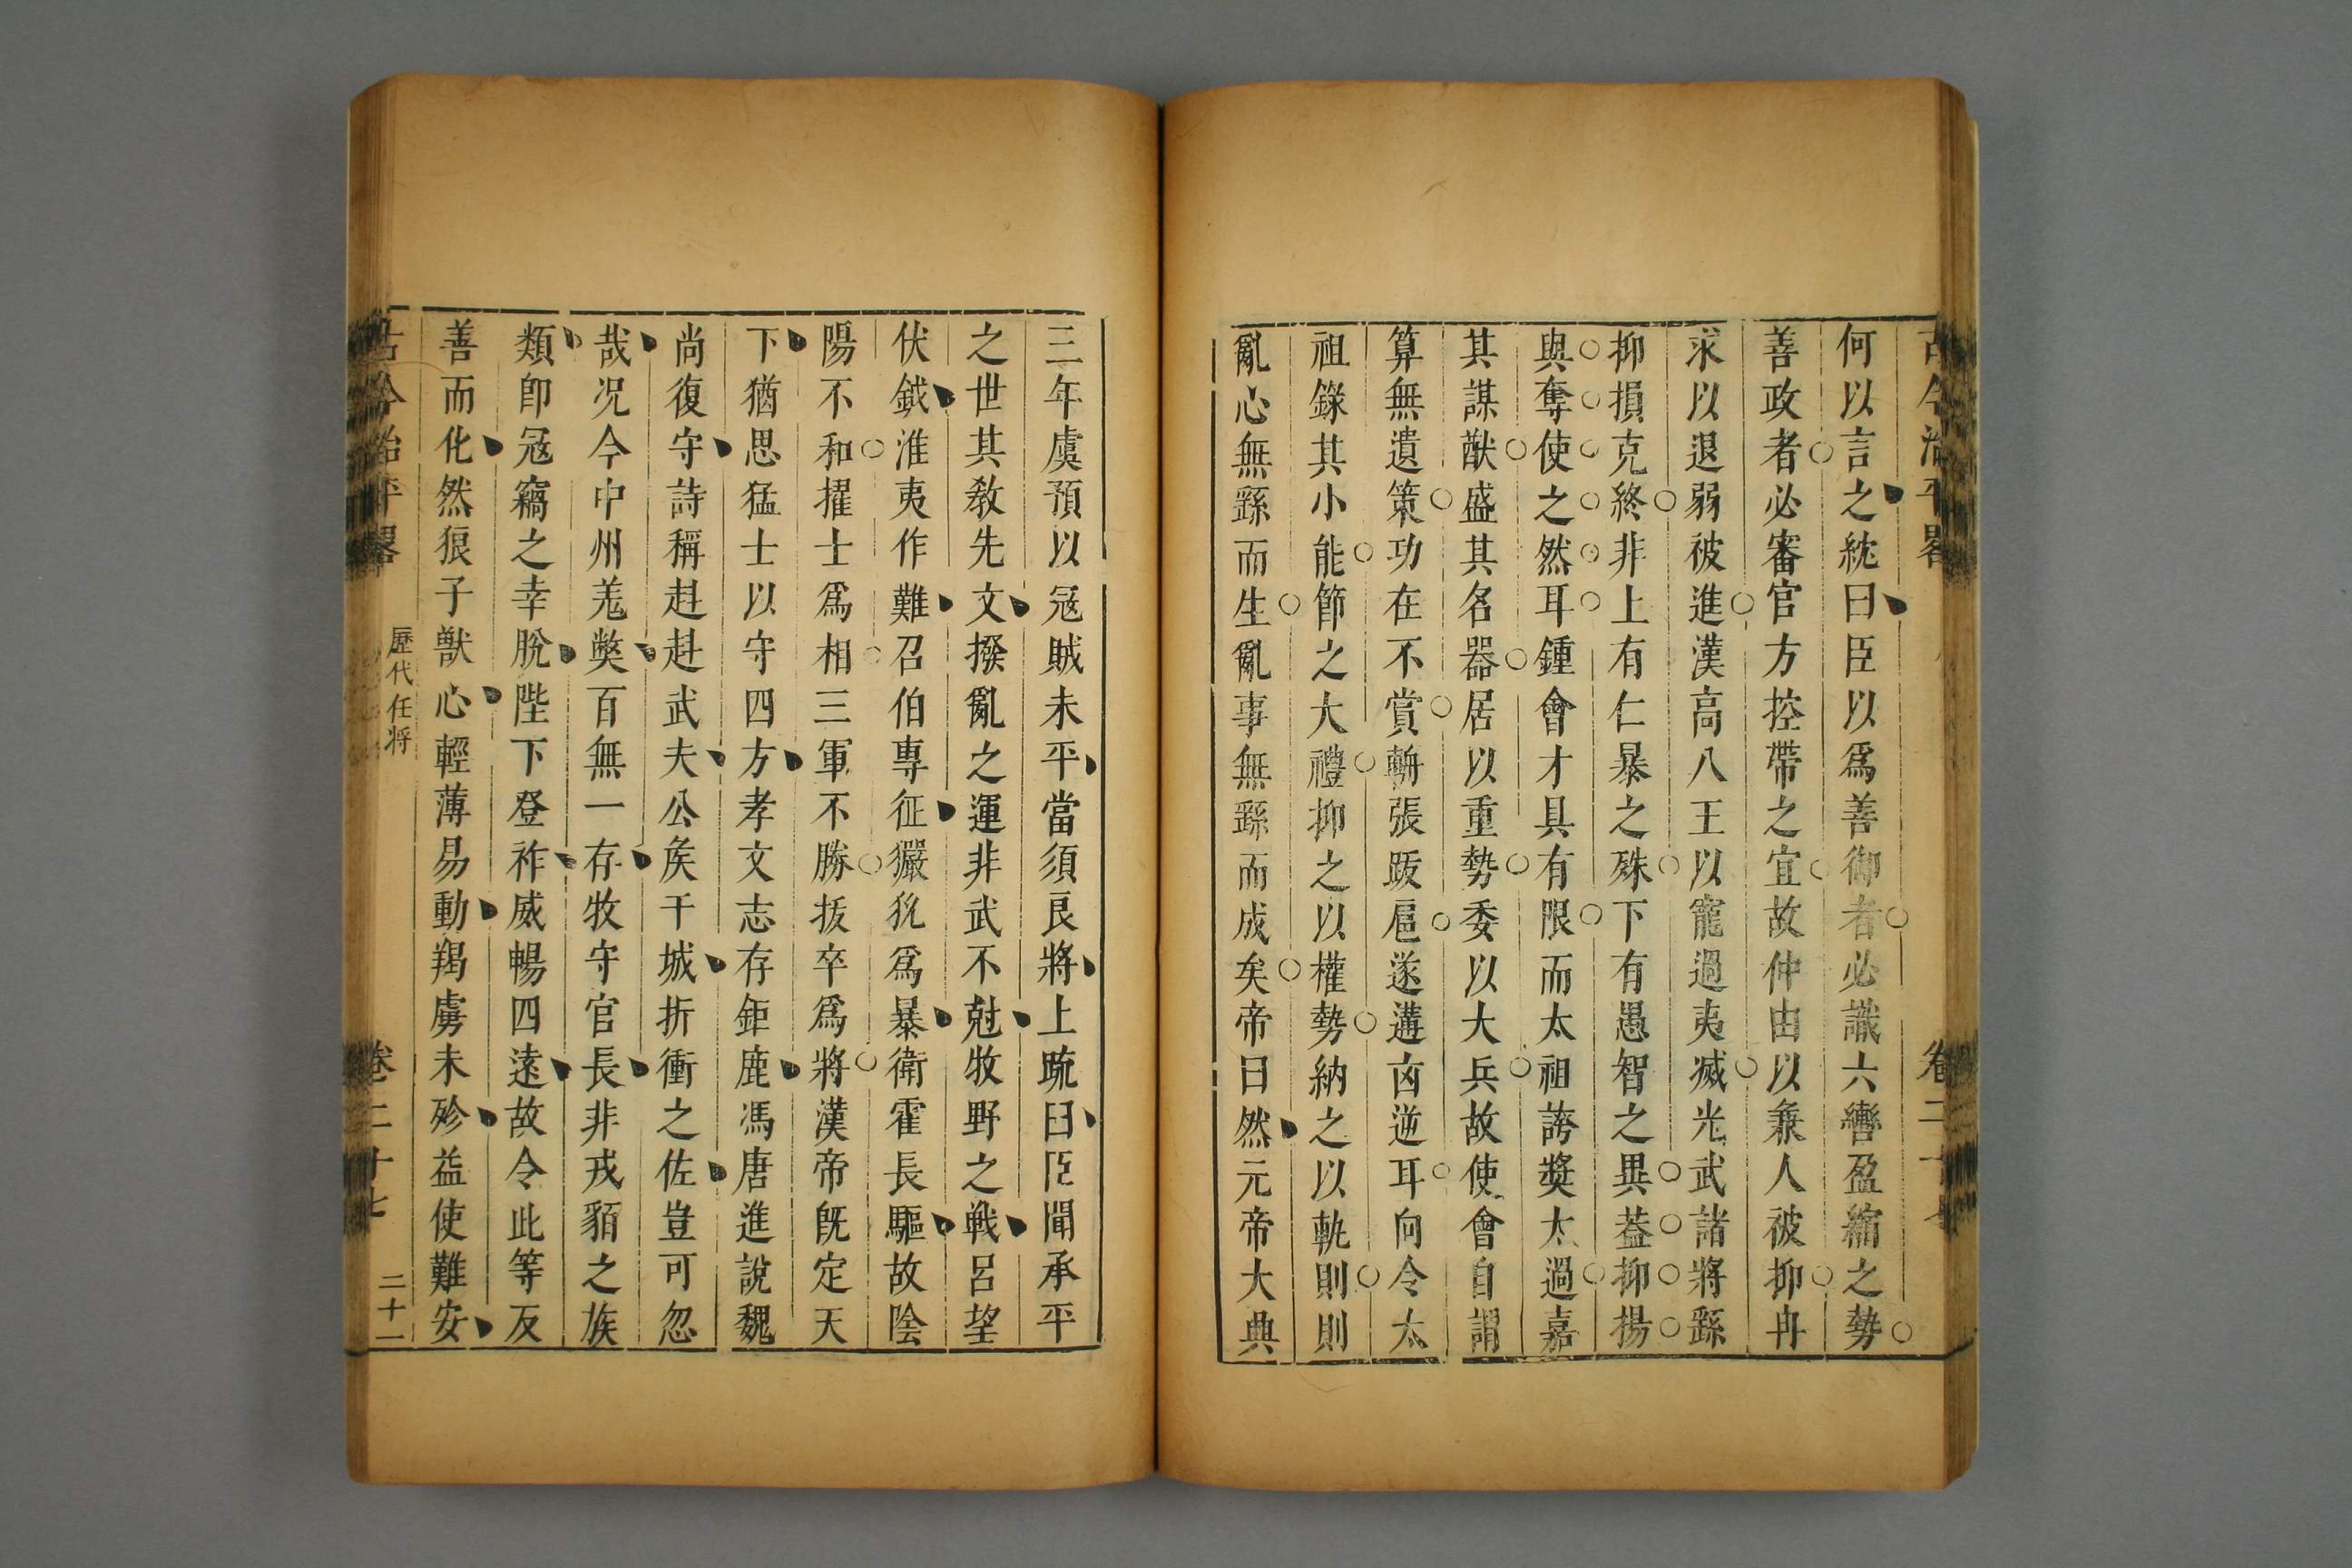 古今治平畧 卷二十七
何以言之紞曰臣以爲善御者必識六轡盈縮之勢
善政者必審官方控帶之宜故仲由以兼人被抑冉
求以退弱被進漢高八王以寵過夷滅光武諸將繇
抑損克終非上有仁暴之殊下有愚智之異葢抑揚
與奪使之然耳鍾會才具有限而太祖誇奬太過嘉
其謀猷盛其名器居以重勢委以大兵故使會自謂
算無遺策功在不賞輈張跋扈遂遘凶逆耳向令太
祖錄其小能節之大禮抑之以權勢納之以軌則則
亂心無繇而生亂事無繇而成矣帝曰然元帝大典
三年虞預以冦賊未平當須良將上疏曰臣聞承平
之世其敎先文撥亂之運非武不尅牧野之戰呂望
伏鉞淮夷作難召伯專征玁狁爲暴衛霍長驅故陰
陽不和擢士爲相三軍不勝拔卒爲將漢帝既定天
下猶思猛士以守四方孝文志存鉅鹿馮唐進說魏
尚復守詩稱赳赳武夫公矦干城折衝之佐豈可忽
哉况今中州羌獘百無一存牧守官長非戎貊之族
類卽冦竊之幸脫陛下登祚威暢四遠故令此等反
善而化然狼子獸心輕薄易動羯虜未殄益使難安
古今治平畧 歷代任將 卷二十七 二十一